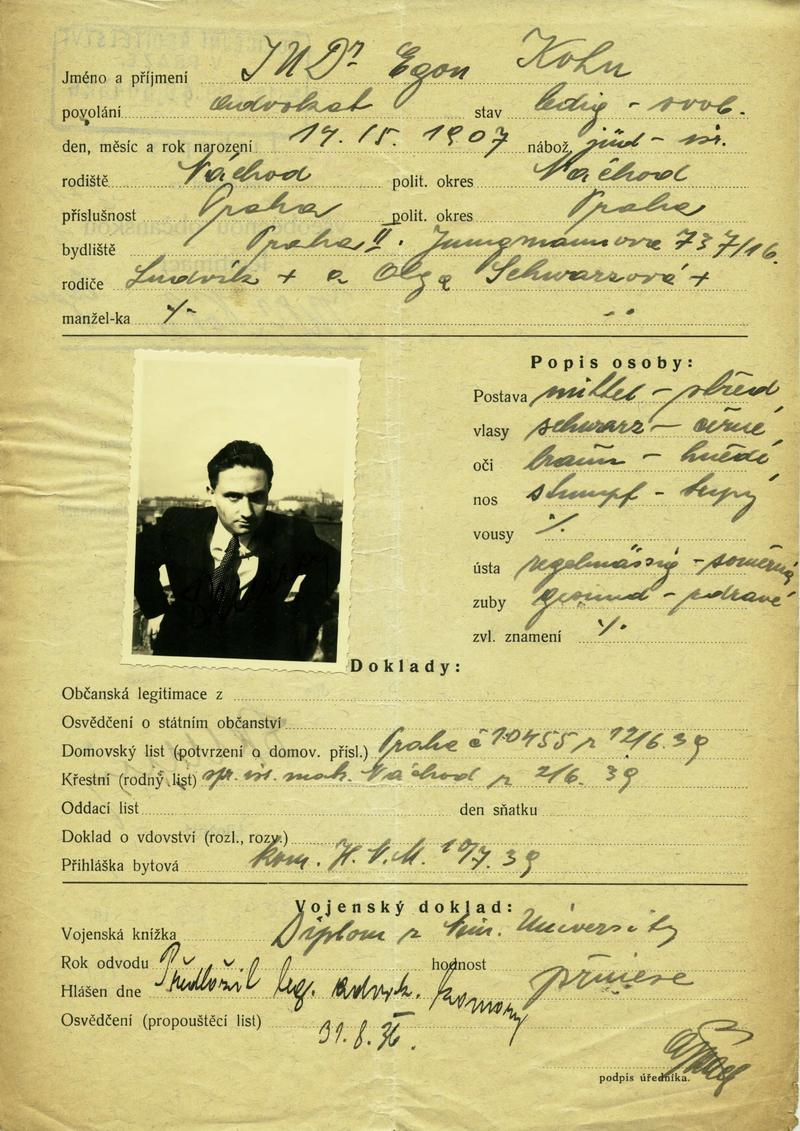 Jméno a příjmení JUDr Egon Kohn
povolání advokat stav ledig - svob.
den, měsíc a rok narození 14. IV. 1907 nábož. jüd - isr.
rodiště Náchod polit. okres Náchod
příslušnost Praha polit. okres Praha
bydliště Praha II. Jungmannova 737/16.
rodiče Ludvík + a Olga Schwarzová +
manžel-ka
Popis osoby:
Postava mittel - střed
vlasy schwarz - černé
oči braun - hnědé
nos stumpf - tupý
vousy
ústa regelmässig - souměrná
zuby gesund - zdravé
zvl. znamení
Doklady:
Občanská legitimace z
Osvědčení o státním občanství
Domovský list (potvrzení o domov. přísl.) Praha č 10455 z 12/6. 39
Křestní (rodný list) isr. mat. Náchod z 2/6. 39
Oddací list den sňatku
Doklad o vdovství (rozl., rozv.)
Přihláška bytová kom. 7. 39
Vojenský doklad:
Vojenská knížka Diplom z University
Rok odvodu hodnost
Předložil leg. advok. komory
Hlášen dne
Osvědčení (propouštěcí list) 31. 8. 36.
podpis úředníka.